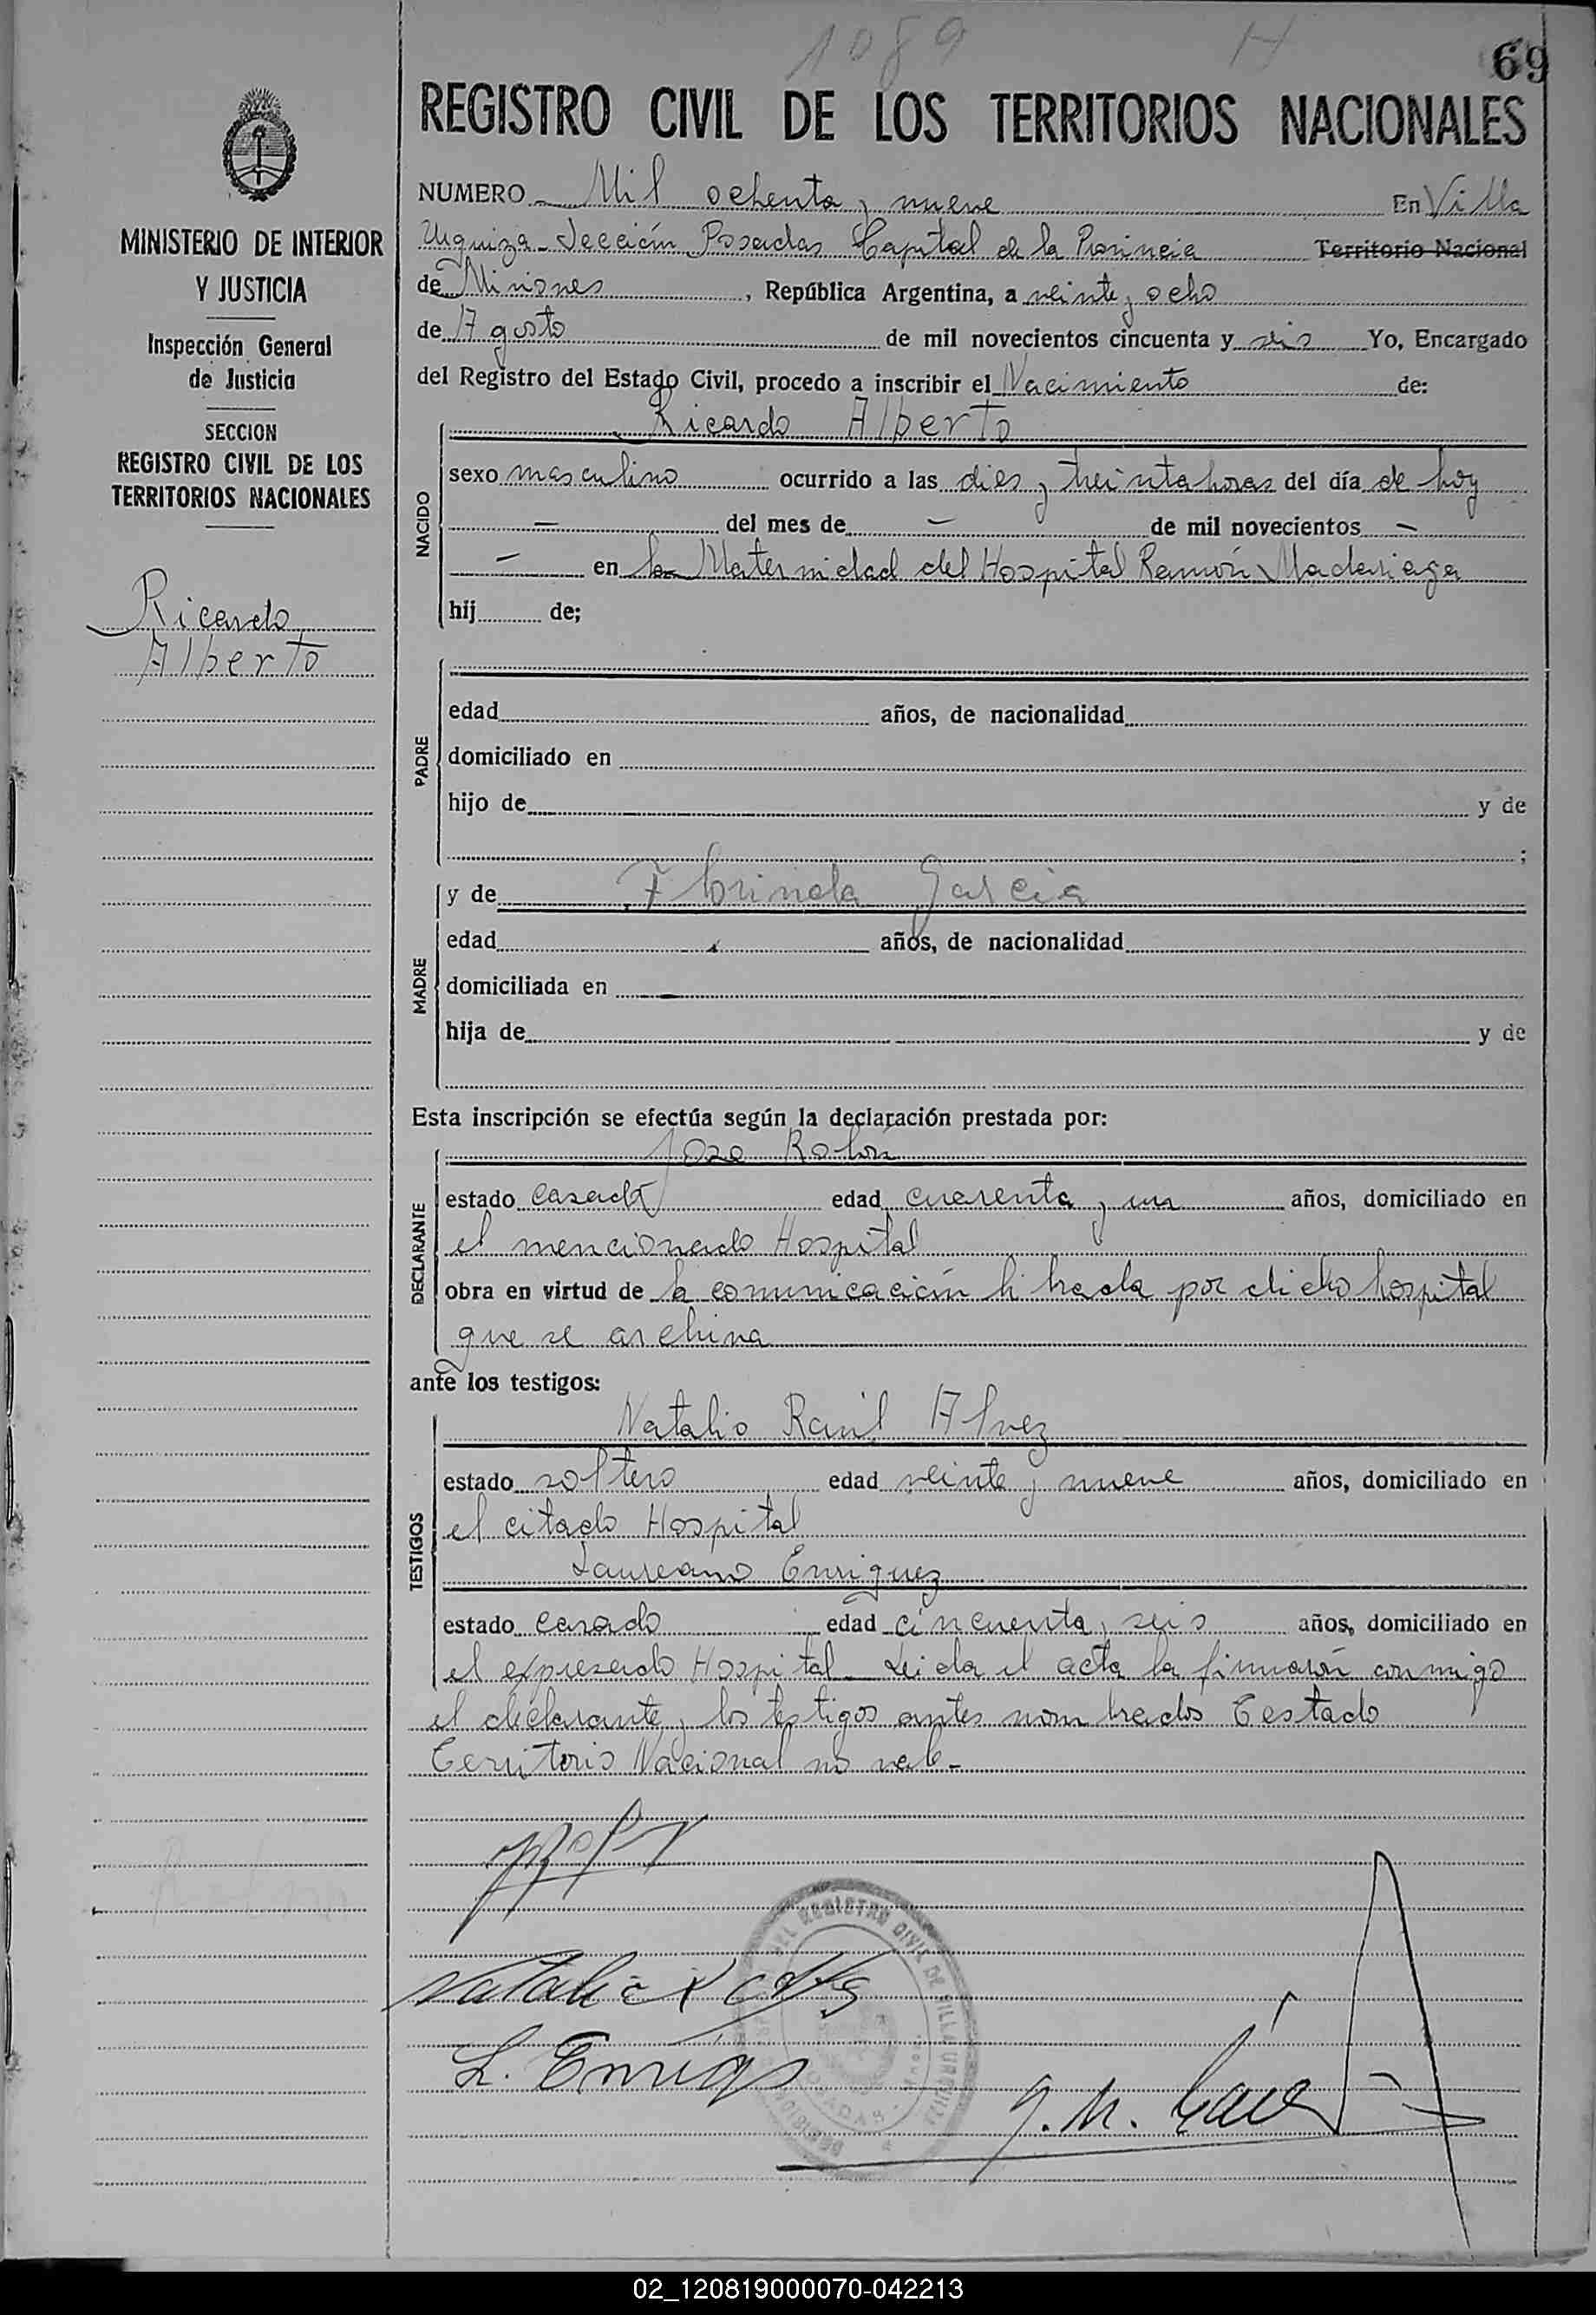 1089 H
69
REGISTRO CIVIL DE LOS TERRITORIOS NACIONALES
MINISTERIO DE INTERIOR
Y JUSTICIA
Inspección General
de Justicia
SECCION
REGISTRO CIVIL DE LOS
TERRITORIOS NACIONALES
Ricardo
Alberto
NUMERO Mil ochenta y nueve En Villa
Urquiza - Sección Posadas Capital de la Provincia Territorio Nacional
de Misiones, República Argentina, a veinte y ocho
de Agosto de mil novecientos cincuenta y seis Yo, Encargado
del Registro del Estado Civil, procedo a inscribir el Nacimiento de:
Ricardo Alberto
NACIDO
sexo masculino ocurrido a las dies y treinta horas del día de hoy
— del mes de — de mil novecientos —
— en la Maternidad del Hospital Ramón Madariaga
hij de;
PADRE
edad años, de nacionalidad
domiciliado en
hijo de y de
;
MADRE
y de Florinda Garcia
edad años, de nacionalidad
domiciliada en
hija de y de
Esta inscripción se efectúa según la declaración prestada por:
DECLARANTE
Jose Rolón
estado casado edad cuarenta y un años, domiciliado en
el mencionado Hospital
obra en virtud de la comunicación librada por dicho hospital
que se archiva
ante los testigos:
TESTIGOS
Natalio Raúl Alvez
estado soltero edad veinte y nueve años, domiciliado en
el citado Hospital
Laureano Enriquez
estado casado edad cincuenta y seis años, domiciliado en
el expresado Hospital - Leida el acta la firmaron conmigo
el declarante y los testigos antes nombrados Testado
Territorio Nacional no vale -
L. Enriqz
02_120819000070-042213